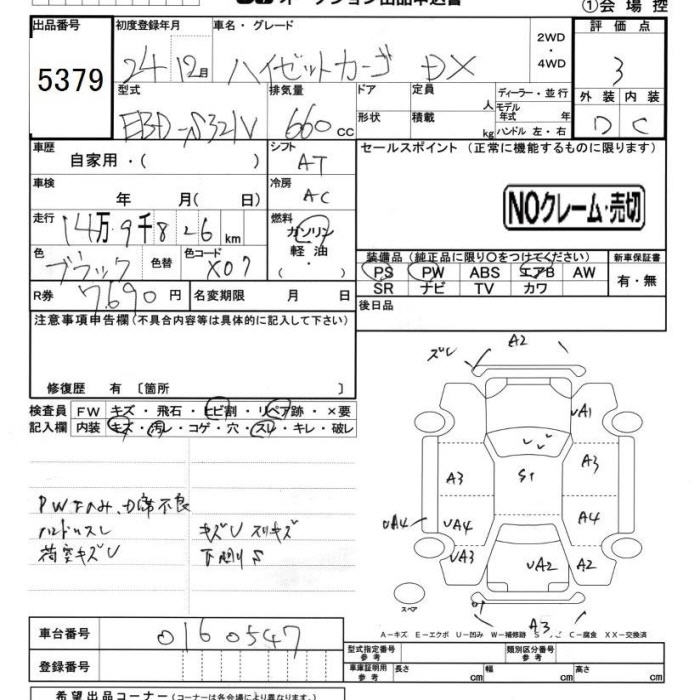 オークション出品申込書
①会場控
出品番号
5379
初度登録年月
24 12月
車名・グレード
ハイゼットカーゴ DX
2WD
・
4WD
評価点
3
外装 内装
D C
型式
EBD-S321V
排気量
660 cc
ドア
定員
人
ディーラー・並行
モデル
年式 年
形状
積載
kg
ハンドル 左・右
車歴
自家用・( )
シフト
AT
セールスポイント (正常に機能するものに限ります)
NOクレーム・売切
車検
年 月( 日)
冷房
AC
走行
14万9千826 km
燃料
ガソリン
軽油
・
( )
色
ブラック
色替
色コード
X07
装備品 (純正品に限り○をつけてください)
PS PW ABS エアB AW
SR ナビ TV カワ
新車保証書
有・無
R券
7690円
名変期限 月 日
後日品
注意事項申告欄 (不具合内容等は具体的に記入して下さい)
修復歴 有 〔箇所 〕
検査員
記入欄
FW キズ・飛石・ヒビ割・リペア跡・×要
内装 キズ・汚レ・コゲ・穴・スレ・キレ・破レ
ハンドルスレ
荷室キズU
キズU スリキズ
下廻りS
ズレ
A2
UA1
A3
S1
A3
UA4
UA4
A4
UA3
UA2
A2
A3
スペア
A－キズ E－エクボ U－凹み W－補修跡 C－腐食 XX－交換済
車台番号
0160547
登録番号
型式指定番号
参考
類別区分番号
参考
車庫証明用
参考
長さ cm
幅 cm
高さ cm
希望出品コーナー (コーナーは各会場により異なります。)